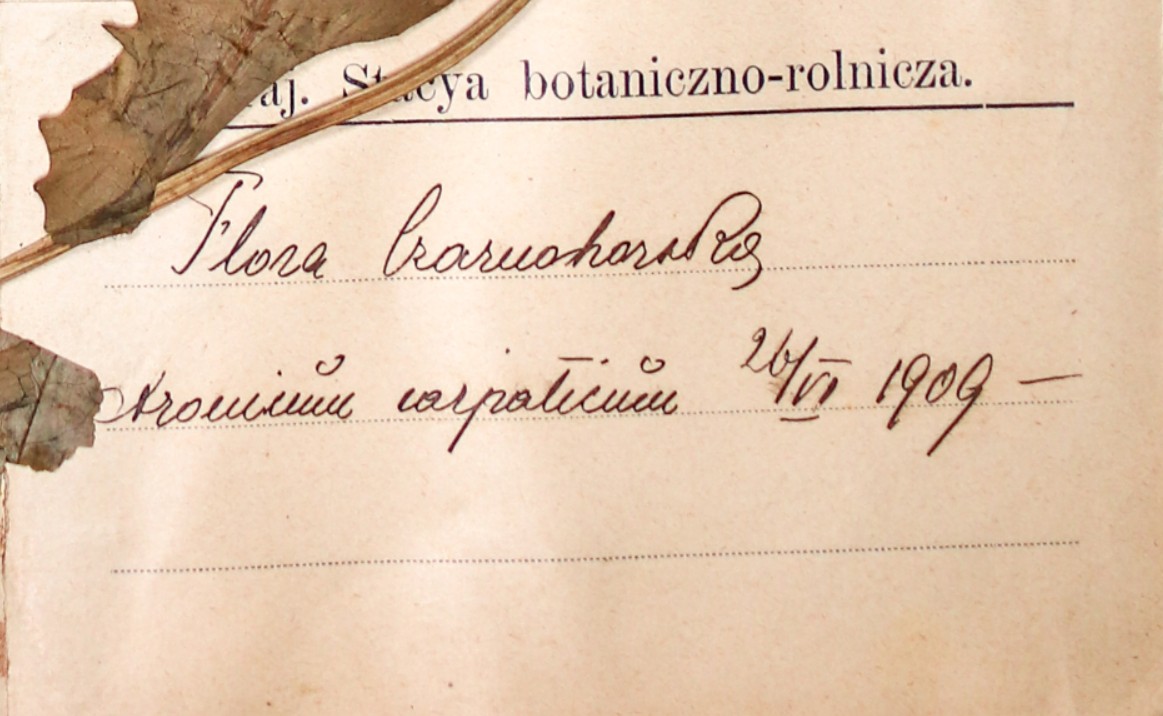 raj. Stacya botaniczno-rolnicza.
Flora Czarnohorska
Aronicum carpaticum 26/VI 1909 —